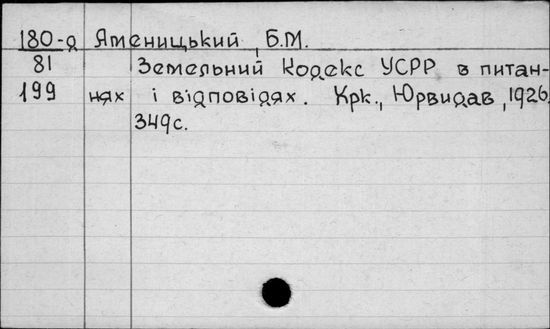 180-д Ятеницький, Б.М.
81 Земельний Кодекс УСРР в питан-
199 нях і відповідях. Крк., Юрвидав, 1926.
349с.